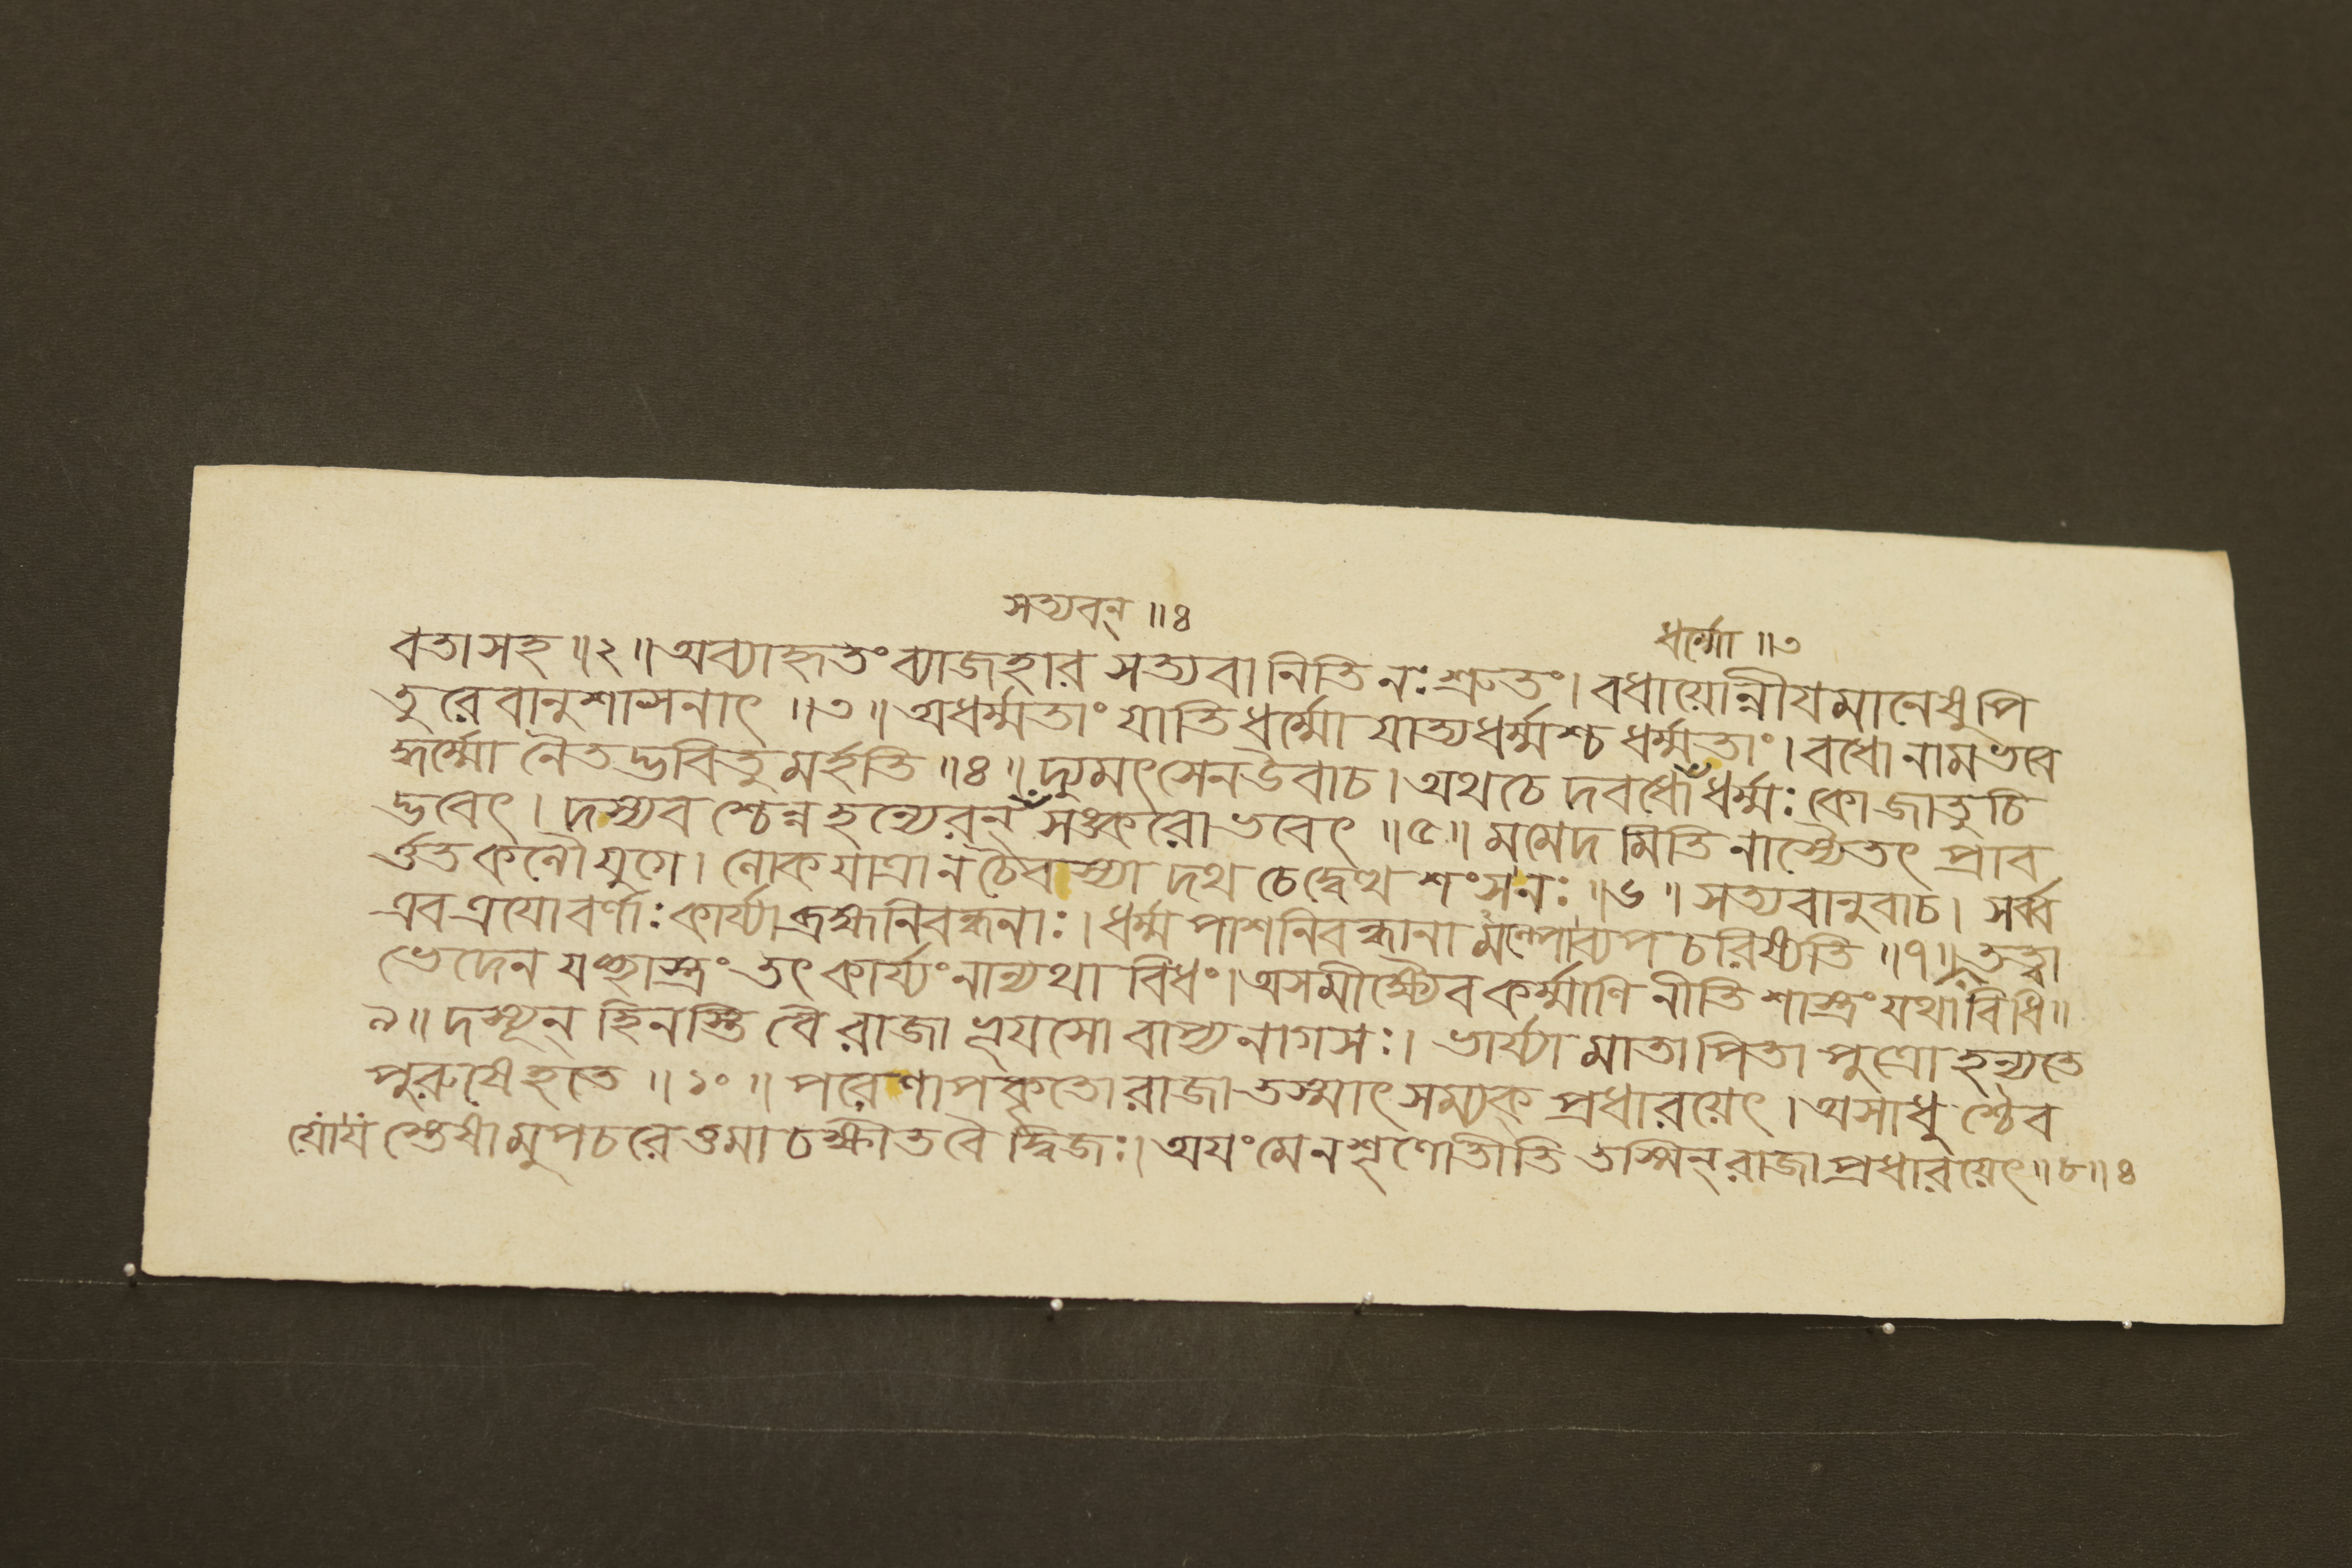 সত্যবন্ ॥ ৪
ধর্ম্মো ॥ ৩
বতা সহ ॥ ২ ॥ অব্যাহৃতং ব্যাজহার সত্যবানিতি নঃ শ্রুতং । বধায়োন্নীযমানেষু পি
তুরেবানুশাসনাৎ ॥ ৩ ॥ অধর্ম্মতাং যাতি ধর্ম্মো যাত্যধর্ম্মশ্চ ধর্ম্মতাং । বধো নাম ভবে
দ্ধর্ম্মো নৈতদ্ভবিতুমর্হতি ॥ ৪ ॥ দ্যুমৎসেন উবাচ । অথ চেদবধো ধর্ম্মঃ কো জাতুচি
দ্ভবেৎ । দস্যবশ্চেন্ন হন্যেরন্ সঙ্করো ভবেৎ ॥ ৫ ॥ মমেদমিতি নাস্যৈতৎ প্রাব
র্ত্তত কলৌ যুগে । লোকযাত্রা ন চৈব স্যাদথ চেদ্বেত্থ শংস নঃ ॥ ৬ ॥ সত্যবানুবাচ । সর্ব্ব
এব ত্রযো বর্ণাঃ কার্য্যা ব্রহ্মনিবন্ধনাঃ । ধর্ম্মপাশনিবন্ধানামল্পো ব্যপচরিষ্যতি ॥ ৭ ॥ তত্ত্বা
ভেদেন যচ্ছাস্ত্রং তৎ কার্য্যং নান্যথা বিধং । অসমীক্ষ্যৈব কর্ম্মাণি নীতিশাস্ত্রং যথাবিধি ॥
৯ ॥ দস্যূন্ হিনস্তি বৈ রাজা ভূযসো বাপ্যনাগসঃ । ভার্য্যা মাতা পিতা পুত্রো হন্যতে
পুরুষে হতে ॥ ১০ ॥ পরেণাপকৃতো রাজা তস্মাৎ সম্যক্ প্রধারয়েৎ । অসাধুশ্চৈব
যো যস্তেষামুপচরেত্তমাচক্ষীত বৈ দ্বিজঃ । অযং মে ন শৃণোতীতি তস্মিন্ রাজা প্রধারয়েৎ ॥ ৮ ॥ ৪